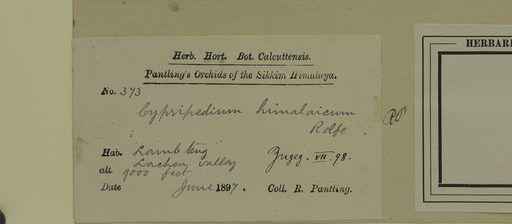 Herb. Hort. Bot. Calcuttensis.
Pantling's Orchids of the Sikkim Himalaya.
No. 373
Cypripedium himalaicum
Rolfe
Hab. Lamteng
Lachen valley
alt. 9000 feet
Zugeg. VII. 98.
Date June 1897.
Coll. R. Pantling.
HERBARI